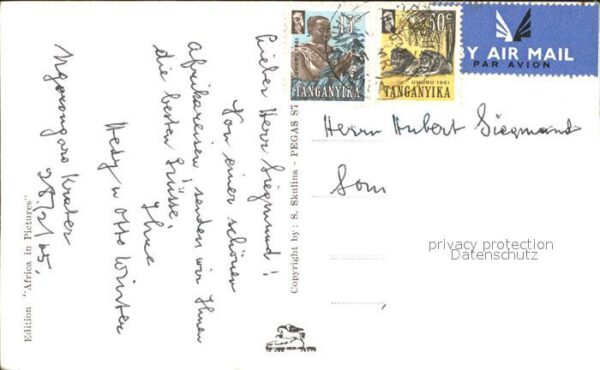 Ngorongoro Krater
28/2/65.
Lieber Herr Siegmund!
Von einer schönen
Afrikareisen senden wir Ihnen
die besten Grüsse.
Ihre
Hedy u Otto Winter
Edition "Africa in Pictures"
Copyright by: S. Skulina - PEGAS ST
UHURU 1961
TANGANYIKA
UHURU 1961
TANGANYIKA
BY AIR MAIL
PAR AVION
Herrn Hubert Siegmund
privacy protection
Datenschutz